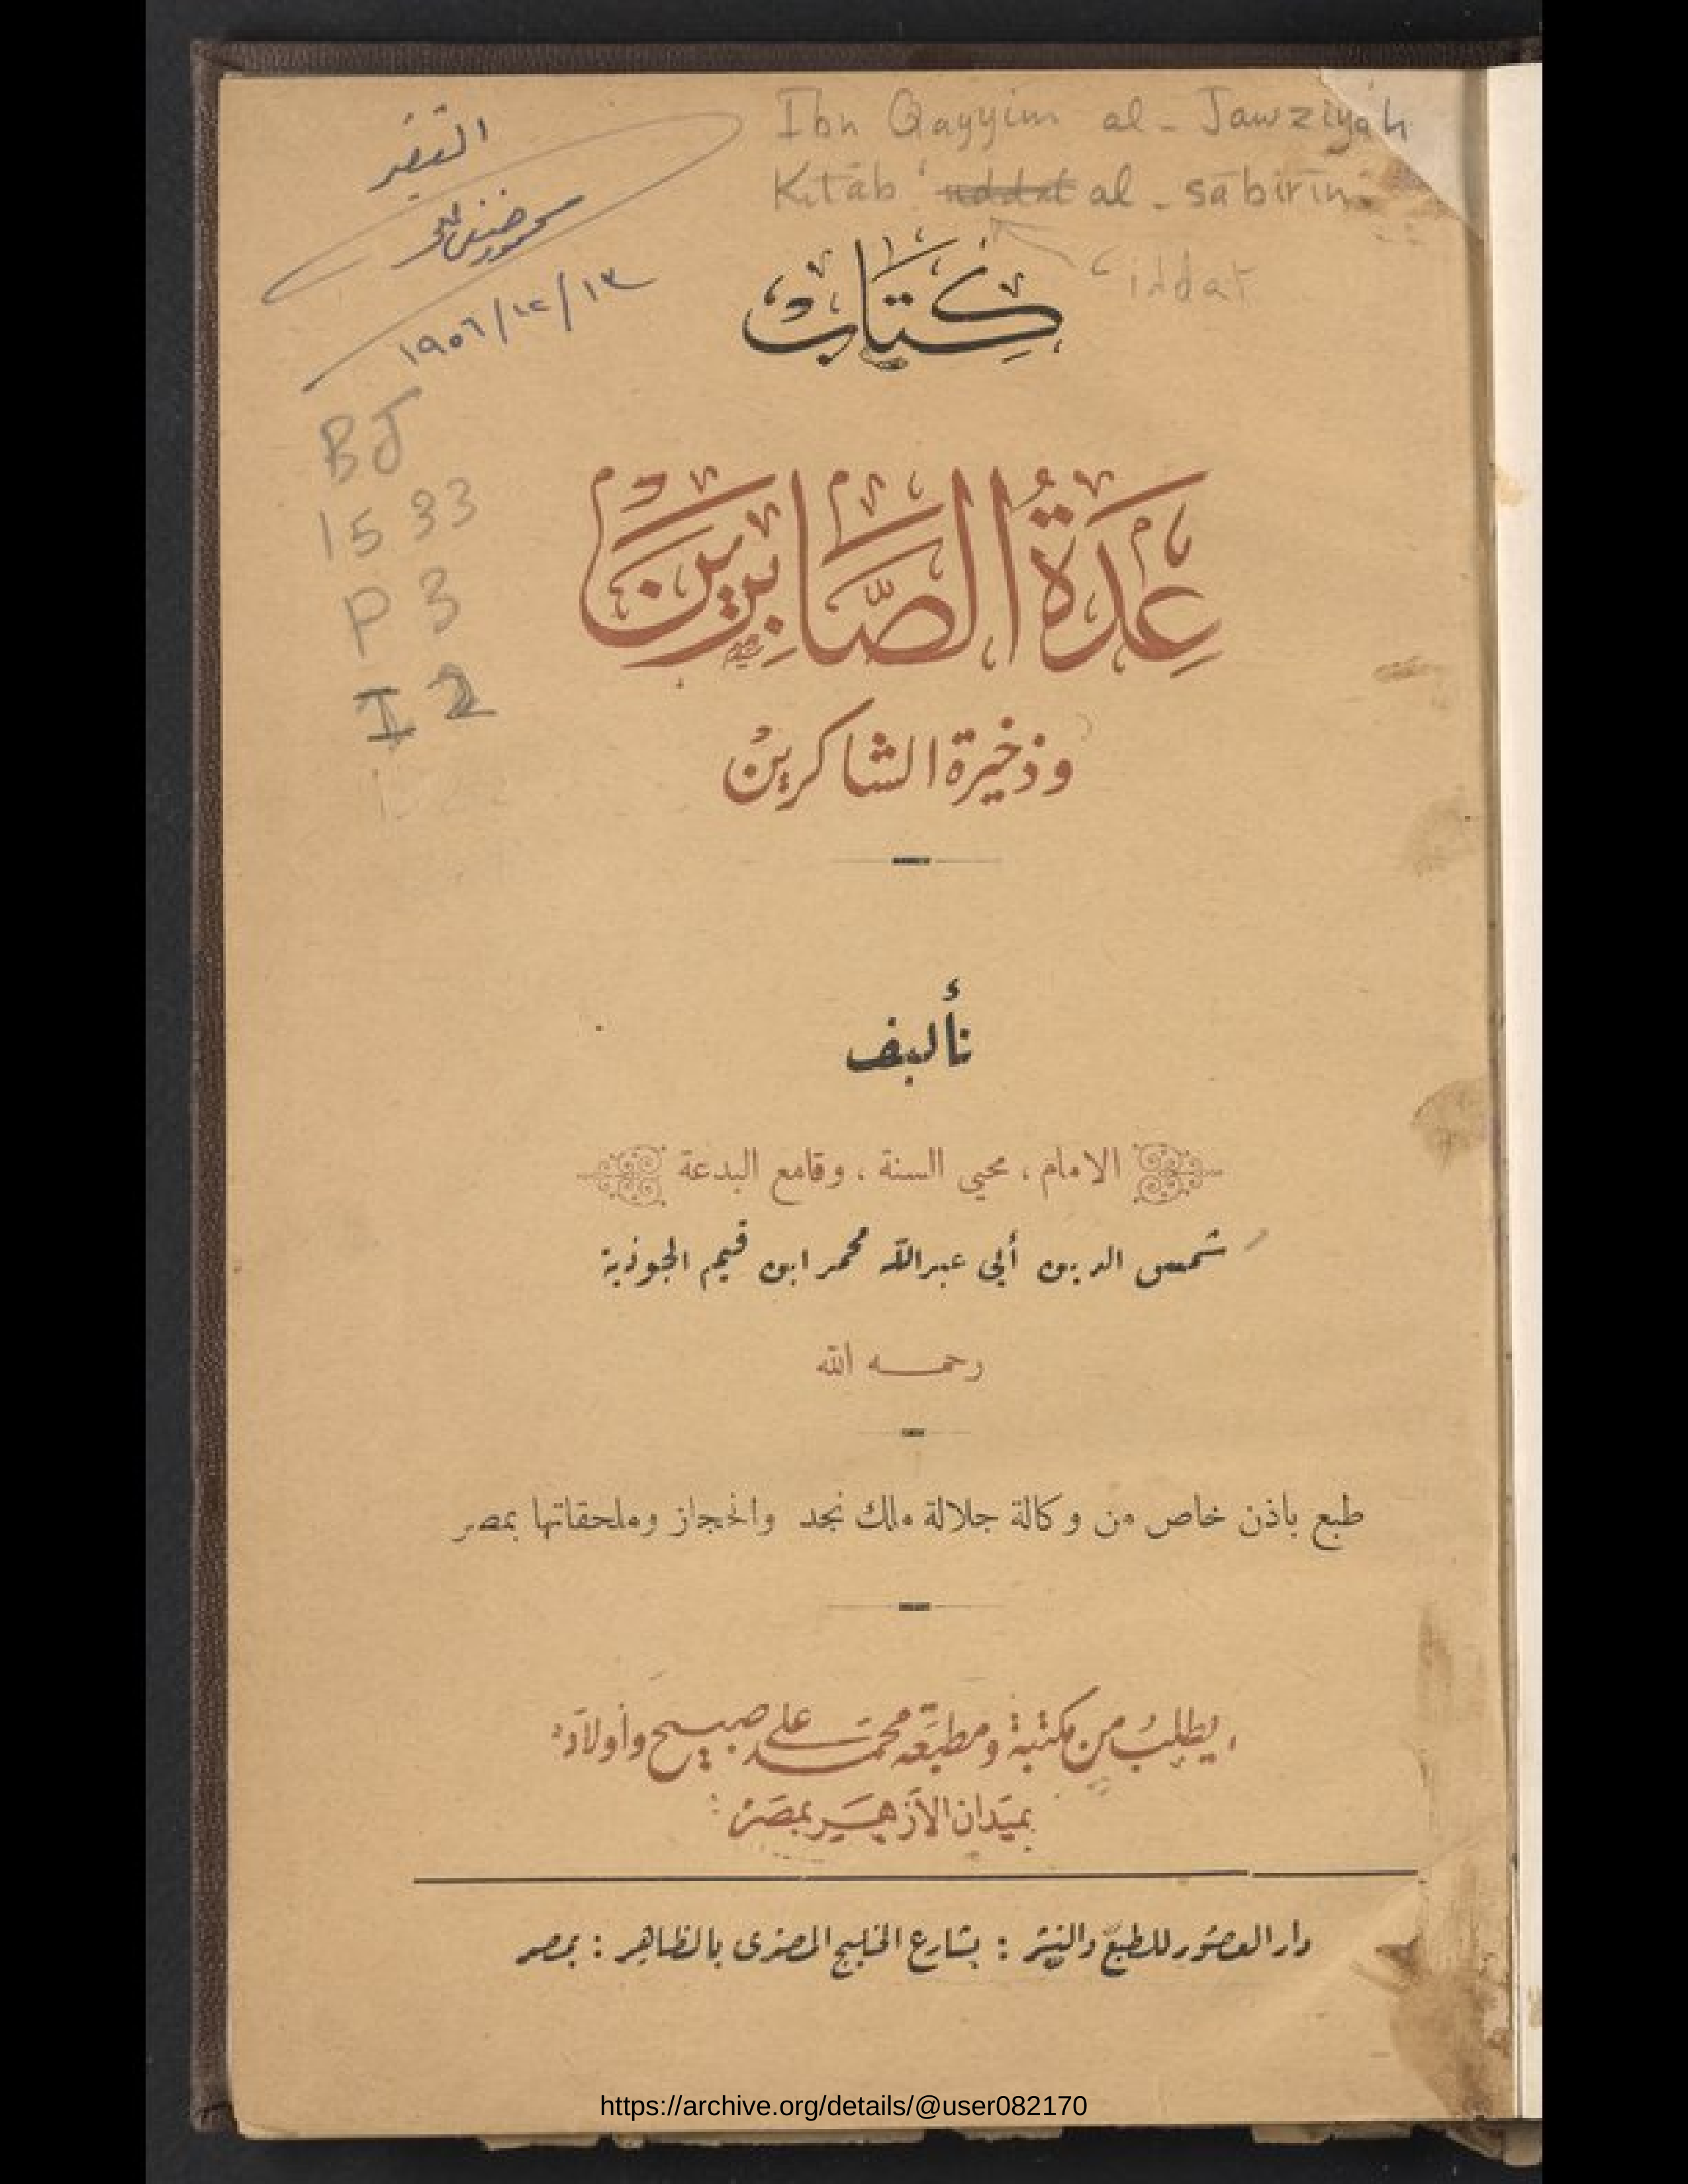 Ibn Qayyim al-Jawziyah
Kitāb ʿuddat al-sābirīn
ʿiddat
١٩٥٦/١٢/١٣
BJ
1533
P3
I2
كِتَاب
عِدَةُ الصَّابِرِينَ
وذخيرة الشاكرين
تأليف
الامام ، محيي السنة ، وقامع البدعة
شمس الدين أبي عبدالله محمد ابن قيم الجوزية
رحمه الله
طبع باذن خاص من وكالة جلالة ملك نجد والحجاز وملحقاتها بمصر
يطلب من مكتبة ومطبعة محمد علي صبيح وأولاده
بميدان الأزهر بمصر
دار العصور للطبع والنشر : بشارع الخليج المصرى بالظاهر : بمصر
https://archive.org/details/@user082170